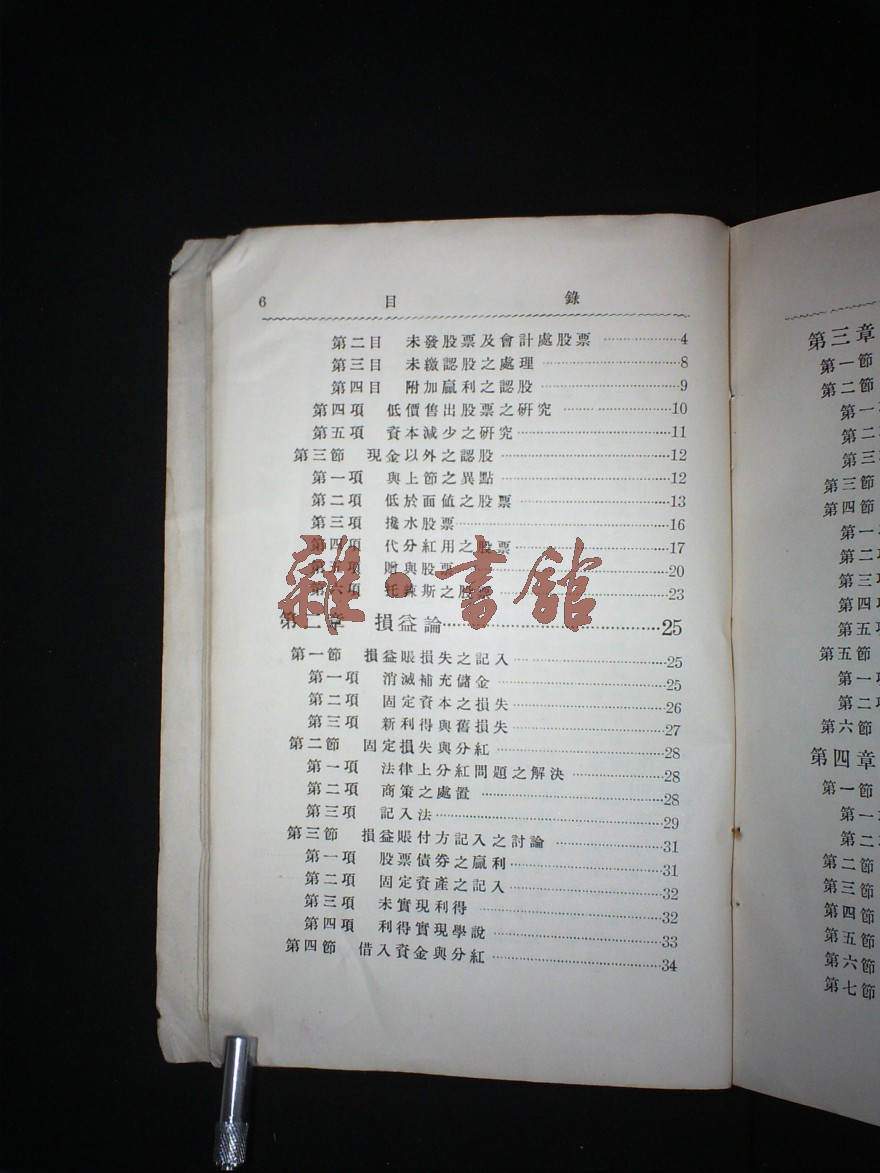 6 目 錄
第二目 未發股票及會計處股票 4
第三目 未繳認股之處理 8
第四目 附加贏利之認股 9
第四項 低價售出股票之硏究 10
第五項 資本減少之硏究 11
第三節 現金以外之認股 12
第一項 與上節之異點 12
第二項 低於面値之股票 13
第三項 攙水股票 16
第四項 代分紅用之股票 17
第五項 贈與股票 20
第六項 斯之股 23
雜·書館
第二章 損益論 25
第一節 損益賬損失之記入 25
第一項 消滅補充儲金 25
第二項 固定資本之損失 26
第三項 新利得與舊損失 27
第二節 固定損失與分紅 28
第一項 法律上分紅問題之解決 28
第二項 商策之處置 28
第三項 記入法 29
第三節 損益賬付方記入之討論 31
第一項 股票債券之贏利 31
第二項 固定資產之記入 32
第三項 未實現利得 32
第四項 利得實現學說 33
第四節 借入資金與分紅 34
第三章
第一節
第二節
第一
第二
第三
第三節
第四節
第一
第二
第三
第四
第五
第五節
第一
第二
第六節
第四章
第一節
第一
第二
第二節
第三節
第四節
第五節
第六節
第七節